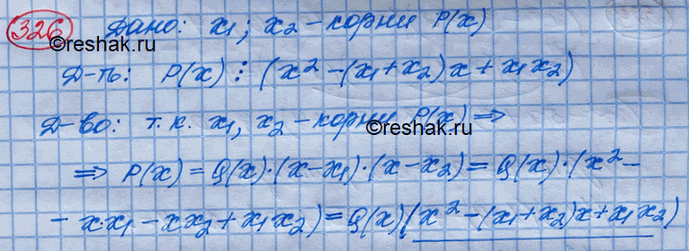 326 Дано: x₁; x₂ - корни P(x)
©reshak.ru
Д-ть: P(x) ⋮ (x² - (x₁ + x₂)x + x₁x₂)
Д-во: т.к. x₁, x₂ - корни P(x) ⇒
©reshak.ru
⇒ P(x) = Q(x)·(x - x₁)·(x - x₂) = Q(x)·(x² -
- x x₁ - x x₂ + x₁x₂) = Q(x)(x² - (x₁ + x₂)x + x₁x₂)